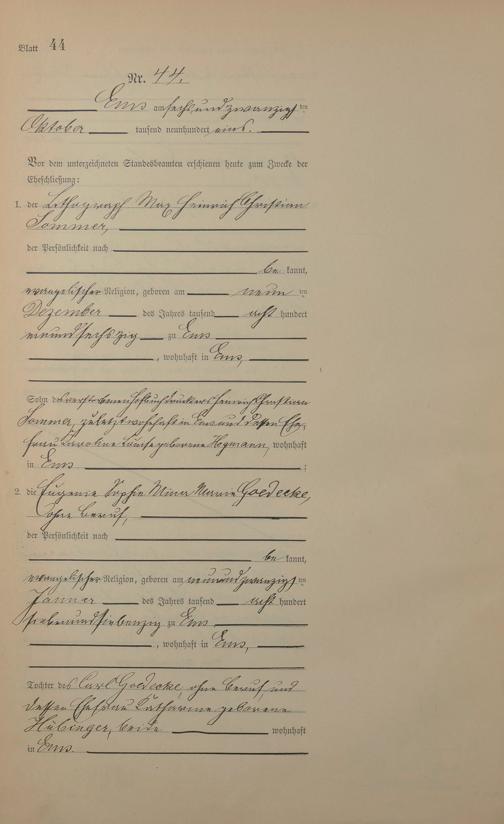 Blatt 44
Nr. 44.
Ems am sechsundzwanzigsten
Oktober tausend neunhundert eins.
Vor dem unterzeichneten Standesbeamten erschienen heute zum Zwecke der
Eheschließung:
1. der Lithograph Max Heinrich Christian
Sommer,
der Persönlichkeit nach
be kannt,
evangelischer Religion, geboren am neun ten
Dezember des Jahres tausend acht hundert
einundsechszig zu Ems
, wohnhaft in Ems,
Sohn des verstorbenen Hofbuchdruckers Heinrich Christian
Sommer, zuletzt wohnhaft in Ems und dessen Ehe-
frau Karoline geborene wohnhaft
in Ems ;
2. die Eugenie Sophie Mina Marie Goedecke,
ohne Beruf,
der Persönlichkeit nach
be kannt,
evangelischer Religion, geboren am neunundzwanzigsten
Jänner des Jahres tausend acht hundert
siebenundsiebenzig zu Ems
, wohnhaft in Ems,
Tochter des Carl Goedecke, ohne Beruf, und
dessen Ehefrau Katharine geborene
Hübinger, beide wohnhaft
in Ems.